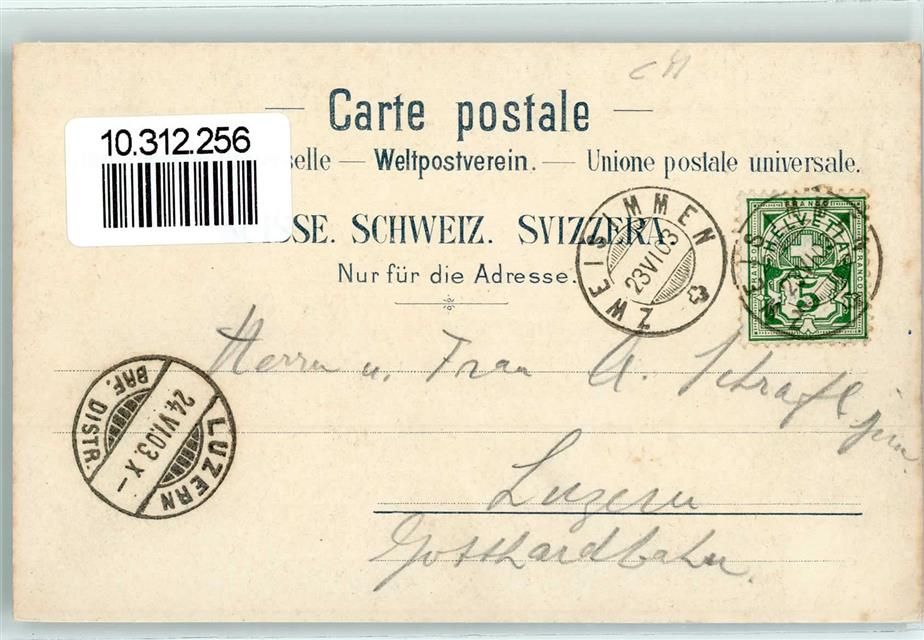 Carte postale
10.312.256
selle — Weltpostverein. — Unione postale universale.
SSE. SCHWEIZ. SVIZZERA
Nur für die Adresse.
ZWEISIMMEN
23 VI 03
FRANCO
HELVETIA
5
Herrn u. Frau A. Schrafl jun.
LUZERN
24. VI. 03. X –
BRF. DISTR.
Luzern
Gotthardbahn.